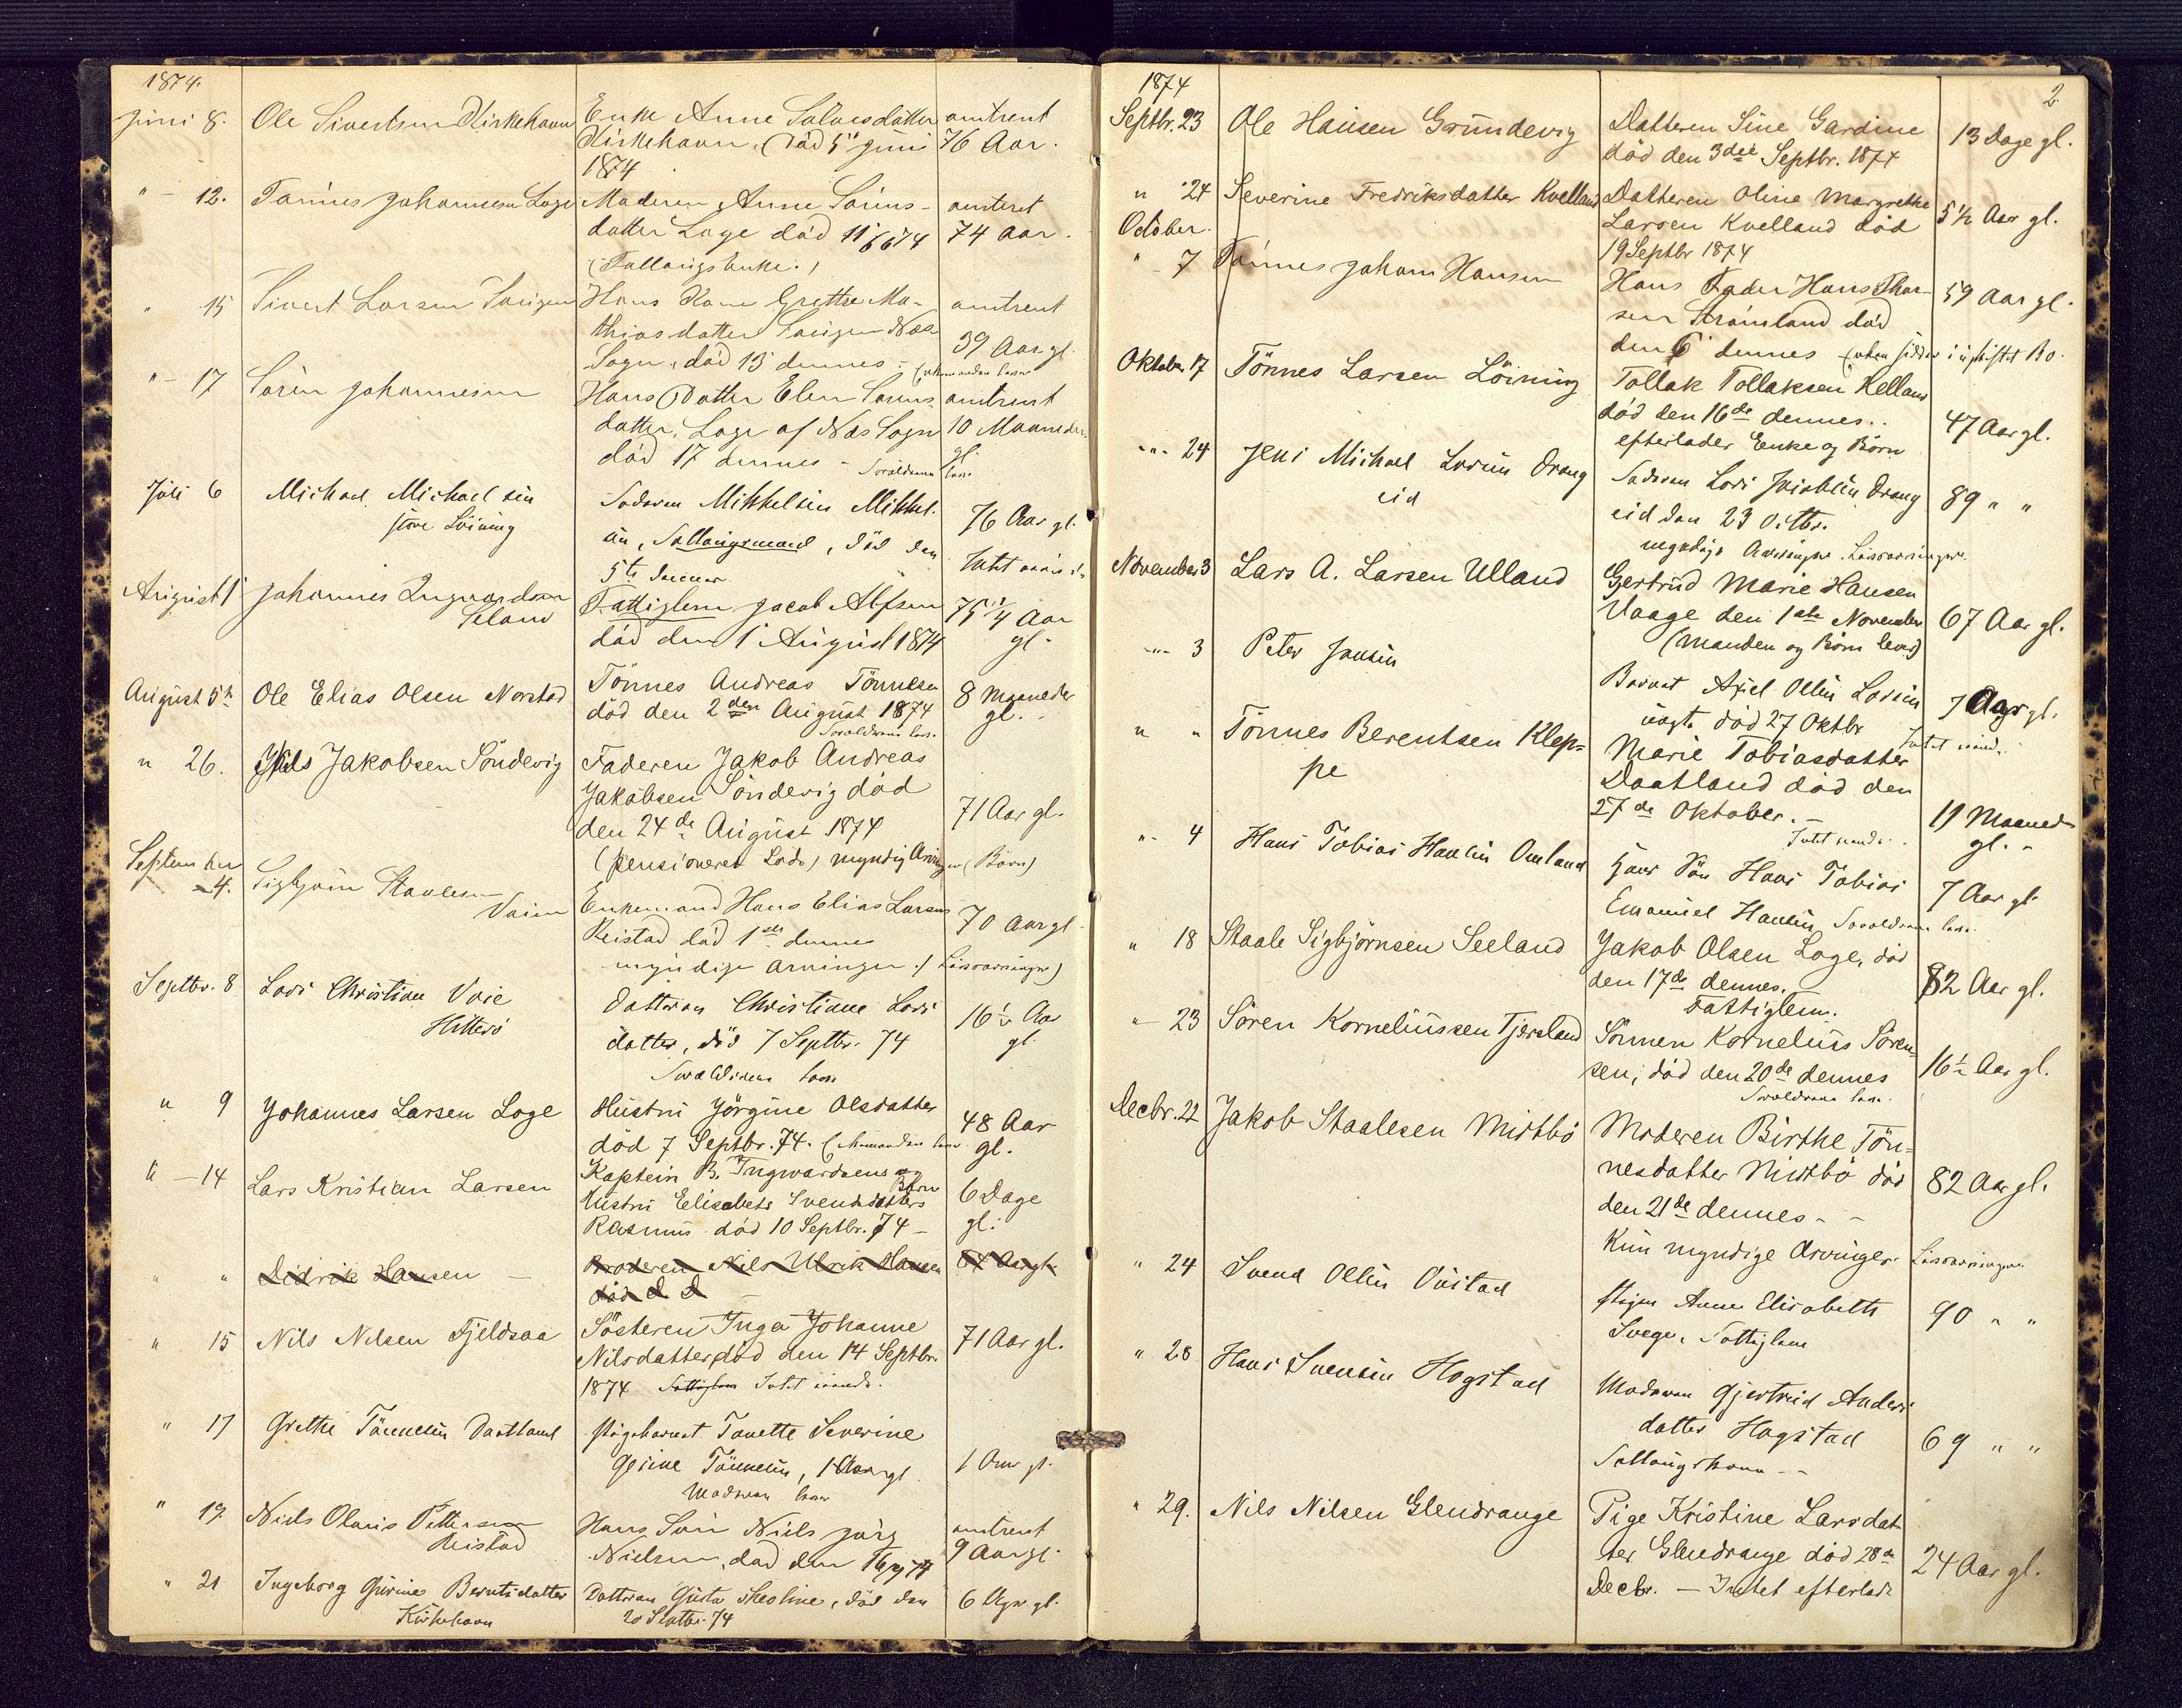 1874.
Juni 8. Ole Sivertsen Kirkehavn Enke Anne Salvesdatter omtrent
Kirkehavn, (död 5te Juni 76 Aar.
1874
" - 12. Tönnes Johannesen Loge Moderen Anne Sörens- omtrent
datter Loge död 11/6 74 74 Aar.
(Fallougs Enke.)
" 15 Sivert Larsen Hans Kone Grethe Ma- omtrent
thiasdatter Næs 39 Aar gl.
Sogn, död 13 dennes -
" - 17 Sören Johannesen Hans Datter Elen Sörens omtrent
datter, Loge af Næs Sogn 10 Maaneder
död 17 dennes - Forældrene leve gl.
Juli 6 Michael Michaelsen Faderen Mikkelsen Mikkel. 76 Aar gl.
store Löining sen, död den Intet
5te dennes
August 1 Johannes Ingvardsen Fattiglem Jacob Alfsen 75 1/4 Aar
Seland död den 1 August 1874 gl.
August 5te Ole Elias Olsen Norstad Tönnes Andreas Tönnesen 8 Maaneder
död den 2den August 1874 gl.
Forældrene leve.
" 26. Nils Jakobsen Söndevig Faderen Jakob Andreas
Jakobsen Söndevig död 71 Aar gl.
den 24de August 1874
(pensioneret Lods) myndige Arvinger (Börn)
September
- 4. Sigbjörn Staalesen Enkemand Hans Elias Larsen 70 Aar gl.
Reistad död 1ste dennes
myndige Arvinger / Livsarvinger)
Septbr. 8 Lars Christian Vaie Datteren Christiane Lars 16 1/2 Aar
Hitterö datter, död 7 Septbr. 74 gl.
Forældrene leve
" 9 Johannes Larsen Loge Hustru Jörgine Olsdatter 48 Aar
död 7 Septbr. 74. (Enkemanden lever gl.
" - 14 Lars Kristian Larsen Kaptein B. Ingwardsens og
Hustru Elisabets Svendsdatters Barn 6 Dage
Rasmus död 10 Septbr. 74 - gl.
" " Didrik Hansen - Broderen Nils Ulrik Hansen 64 Aar gl.
död d. d.
" 15 Nils Nilsen Fjeldsaa Søsteren Inga Johanne
Nilsdatter död den 14 Septbr. 71 Aar gl.
1874 Fattiglem Intet
" 17 Grethe Tönnesen Daatland Pigebarnet Tonette Severine
Gurine Tönnesen, 1 Aar gl. 1 Aar gl.
Moderen lever
" 19. Niels Olaus Pettersen Hans Sön Niels Jörg omtrent
Reistad Nielsen, död den 9 Aar gl.
" 21 Ingeborg Gurine Berntsdatter Datteren Gusta död den 6 Uger gl.
Kirkehavn 20 Septbr. 74
1874
2.
Septbr. 23 Ole Hansen Grundevig Datteren Sine Gardine 13 Dage gl.
död den 3die Septbr. 1874
" 24 Severine Fredriksdatter Kvelland Datteren Oline Margrethe 5 1/2 Aar gl.
October. Larsen Kvelland död
19 Septbr 1874
" 7 Tönnes Johan Hansen Hans Fader Hans Thor- 59 Aar gl.
sen Strömland död
den 6 dennes (Enken sidder i uskiftet Bo.
Oktober 17 Tönnes Larsen Löining Tollak Tollaksen Kelland
död den 16de dennes. 47 Aar gl.
efterlader Enke og Börn
" - 24 Jens Michael Larsen Drang Faderen Lars Jakobsen Drang 89 " "
eid eid den 23 Octbr.
myndige Arvinger. Livsarvinger.
November 3 Lars A. Larsen Ulland Gertrud Marie Hansen
Vaage den 1ste November 67 Aar gl.
(Manden og Börn lever)
" - 3 Peter Jensen Barnet Axel Olsen Larsen 7 Aar gl.
död 27 Oktbr Intet
" " Tönnes Berentsen Klep= Marie Tobiasdatter
pe Daatland död den
27de Oktober. - 19 Maaneder
Intet gl. -
" - 4 Hans Tobias Hansen Omland Hans Sön Hans Tobias 7 Aar gl.
Emanuel Hansen, Forældrene leve.
" 18 Staale Sigbjörnsen Seeland Jakob Olsen Loge, död
den 17de dennes. 82 Aar gl.
Fattiglem.
" - 23 Sören Korneliussen Tjersland Sönnen Kornelius Sören-
sen, död den 20de dennes 16 1/2 Aar gl.
Forældrene leve.
Decbr. 22 Jakob Staalesen Midtbö Moderen Birthe Tön-
nesdatter Midtbö död 82 Aar gl.
den 21de dennes - -
Kun myndige Arvinger. Livsarvinger.
" 24 Svend Olsen Pigen Anne Elisabeth 90 " "
Svege, Fattiglem
" 28 Hans Svensen Hogstad Moderen Gjertrud Anders
datter Hogstad 69 " "
" 29. Nils Nilsen Glendrange Pige Kristine Larsdat
ter Glendrange död 28de 24 Aar gl.
Decbr. - Intet efterladt